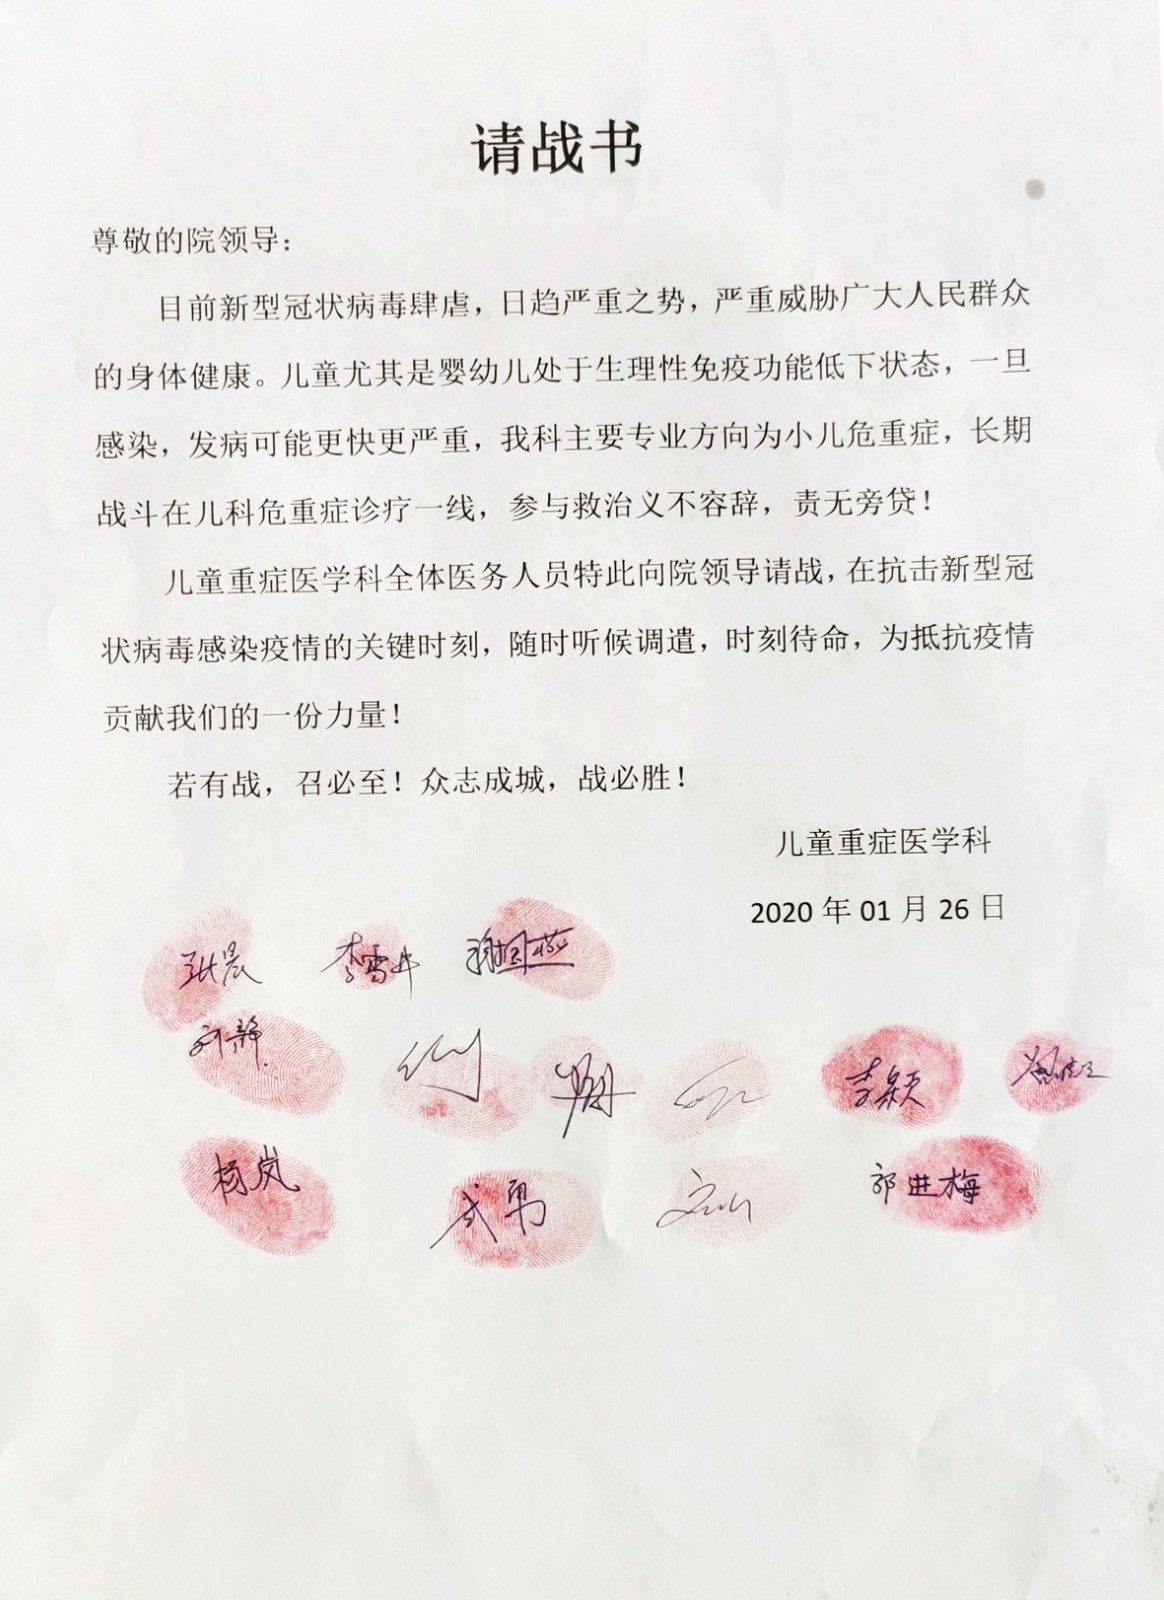 请战书
尊敬的院领导：
目前新型冠状病毒肆虐，日趋严重之势，严重威胁广大人民群众
的身体健康。儿童尤其是婴幼儿处于生理性免疫功能低下状态，一旦
感染，发病可能更快更严重，我科主要专业方向为小儿危重症，长期
战斗在儿科危重症诊疗一线，参与救治义不容辞，责无旁贷！
儿童重症医学科全体医务人员特此向院领导请战，在抗击新型冠
状病毒感染疫情的关键时刻，随时听候调遣，时刻待命，为抵抗疫情
贡献我们的一份力量！
若有战，召必至！众志成城，战必胜！
儿童重症医学科
2020 年 01 月 26 日
张晨
刘静
李颖
杨岚
郭进梅